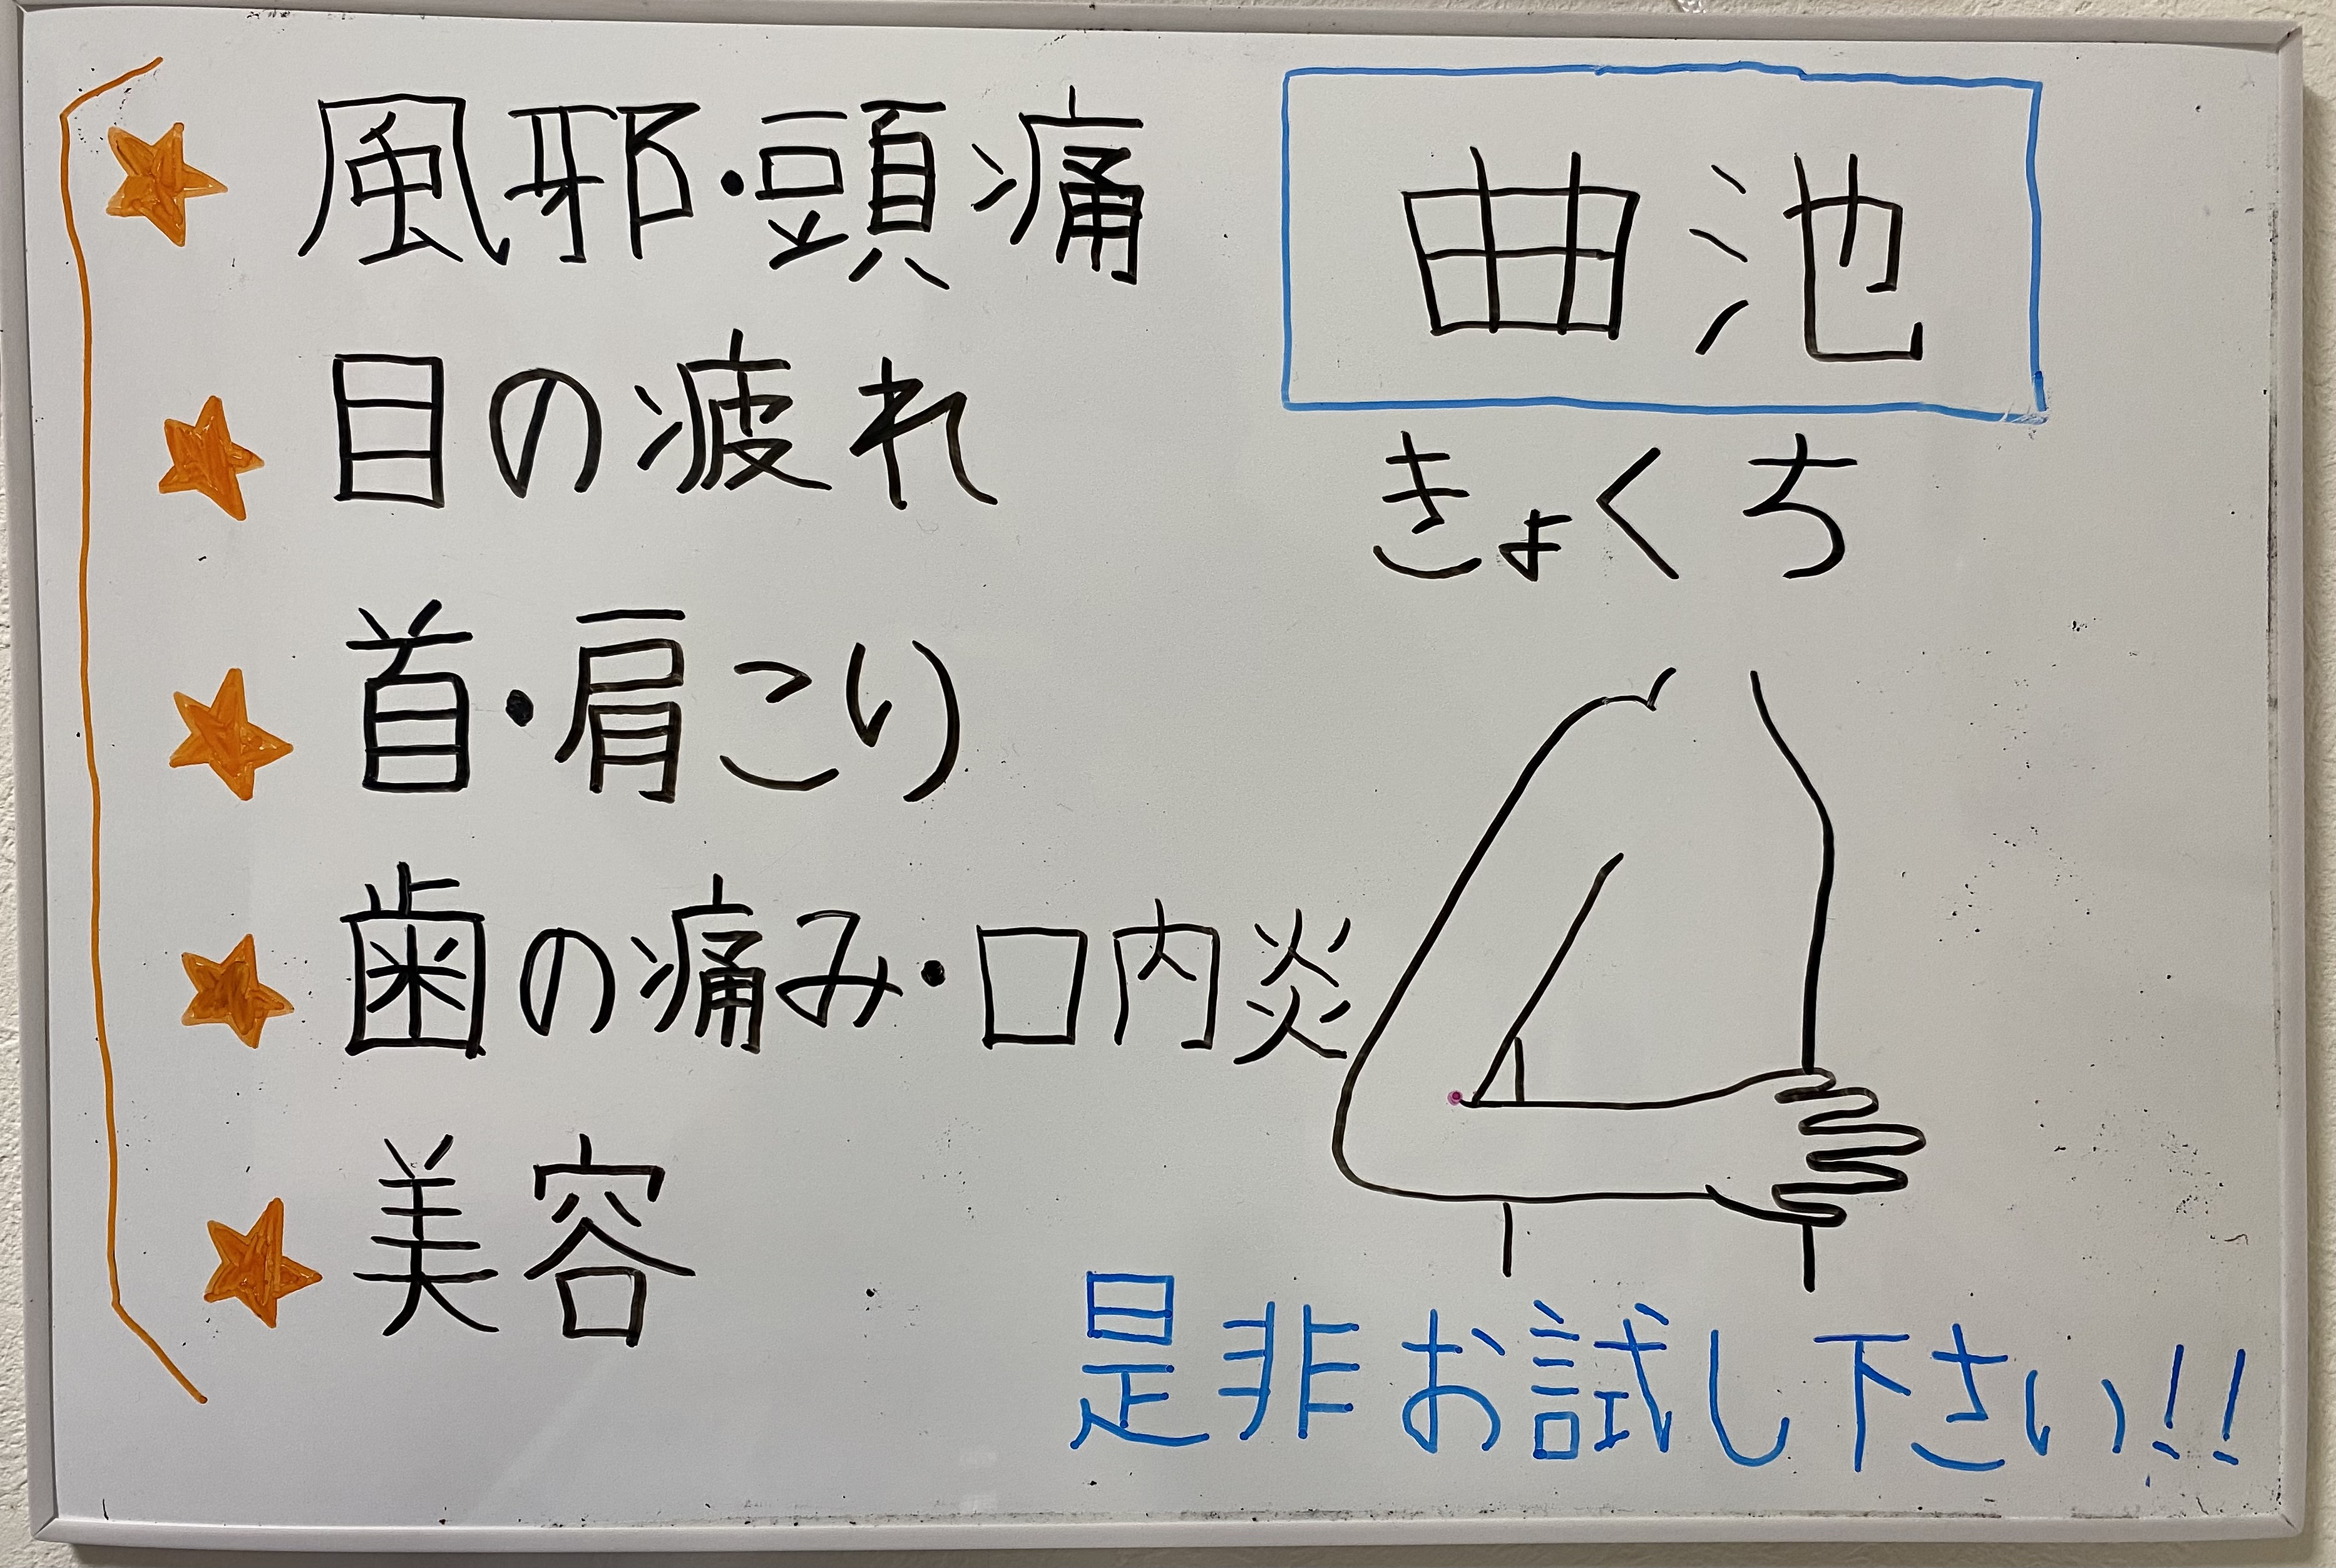 曲池
きょくち
風邪・頭痛
目の疲れ
首・肩こり
歯の痛み・口内炎
美容
是非お試し下さい!!